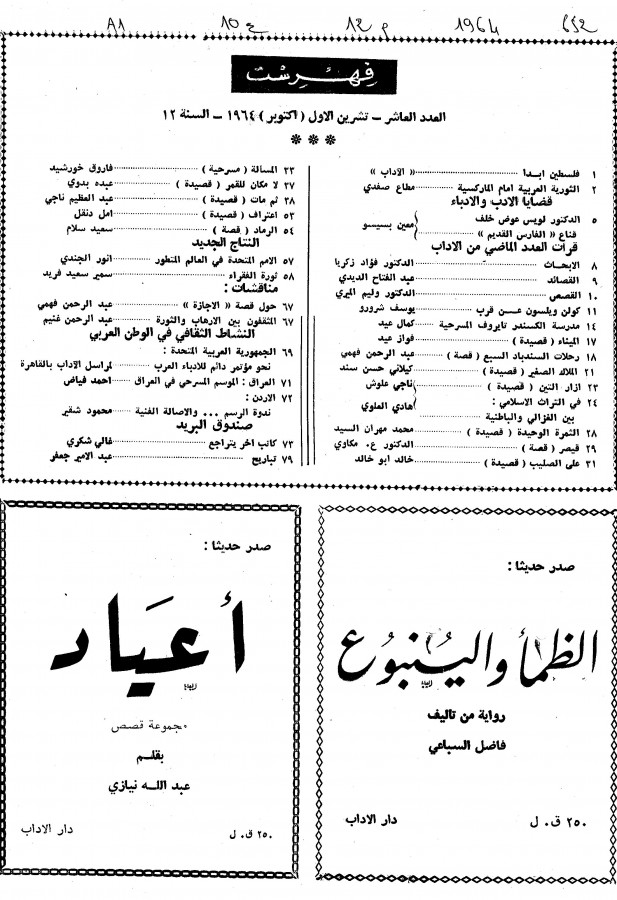 A1 10 ع 12 م 1964 652
فهرست
العدد العاشر – تشرين الاول ( اكتوبر ) ١٩٦٤ – السنة ١٢
١ فلسطين ابدا « الآداب »
٢ الثورية العربية امام الماركسية مطاع صفدي
قضايا الادب والادباء
٥ الدكتور لويس عوض خلف
قناع « الفارس القديم » معين بسيسو
قرأت العدد الماضي من الآداب
٨ الابحاث الدكتور فؤاد زكريا
٩ القصائد عبد الفتاح الديدي
١٠ القصص الدكتور وليم الميري
١١ كولن ويلسون عن قرب يوسف شرورو
١٤ مدرسة الكسندر تايروف المسرحية كمال عيد
١٧ الميناء ( قصيدة ) فواز عيد
١٨ رحلات السندباد السبع ( قصة ) عبد الرحمن فهمي
٢١ الملاك الصغير ( قصيدة ) كيلاني حسن سند
٢٣ ازار التين ( قصيدة ) ناجي علوش
٢٤ في التراث الاسلامي :
بين الغزالي والباطنية هادي العلوي
٢٨ الثمرة الوحيدة ( قصيدة ) محمد مهران السيد
٢٩ قيصر ( قصة ) الدكتور ع. مكاوي
٣١ على الصليب ( قصيدة ) خالد ابو خالد
٣٣ المسألة ( مسرحية ) فاروق خورشيد
٣٧ لا مكان للقمر ( قصيدة ) عبده بدوي
٣٨ ثم مات ( قصيدة ) عبد العظيم ناجي
٥٣ اعتراف ( قصيدة ) امل دنقل
٥٤ الرماد ( قصة ) سعيد سلام
النتاج الجديد
٥٧ الامم المتحدة في العالم المتطور انور الجندي
٥٨ ثورة الفقراء سمير سعيد فريد
مناقشات :
٦٧ حول قصة « الاجازة » عبد الرحمن فهمي
٦٧ المثقفون بين الارهاب والثورة عبد الرحمن غنيم
النشاط الثقافي في الوطن العربي
٦٩ الجمهورية العربية المتحدة :
نحو مؤتمر دائم للادباء العرب لمراسل الآداب بالقاهرة
٧١ العراق : الموسم المسرحي في العراق احمد فياض
٧٢ الاردن :
ندوة الرسم ... والاصالة الفنية محمود شقير
صندوق البريد
٧٣ كاتب آخر يتراجع غالي شكري
٧٩ تباريح عبد الامير جعفر
صدر حديثا :
الظمأ والينبوع
رواية من تأليف
فاضل السباعي
٢٥٠ ق. ل دار الاداب
صدر حديثا :
أعياد
مجموعة قصص
بقلم
عبد الله نيازي
٢٥٠ ق. ل دار الاداب